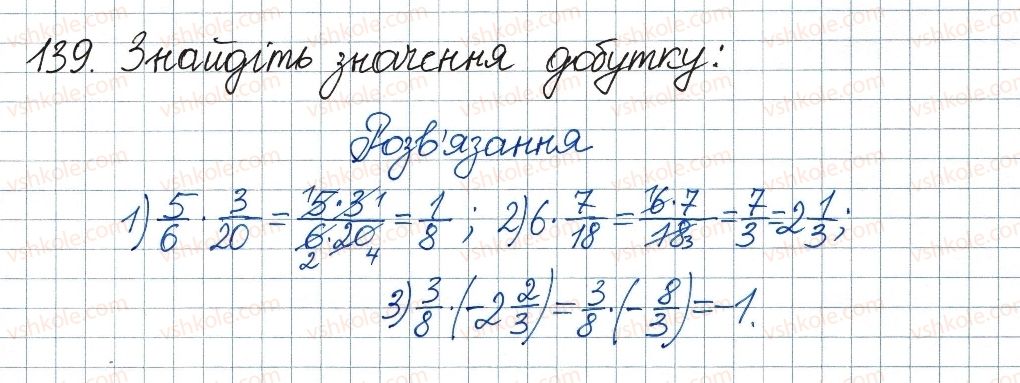 139. Знайдіть значення добутку:
Розв'язання
1) 5/6 · 3/20 = 5·3/6·20 = 1/8 ; 2) 6 · 7/18 = 6·7/18 = 7/3 = 2 1/3 ;
3) 3/8 · (-2 2/3) = 3/8 · (-8/3) = -1.